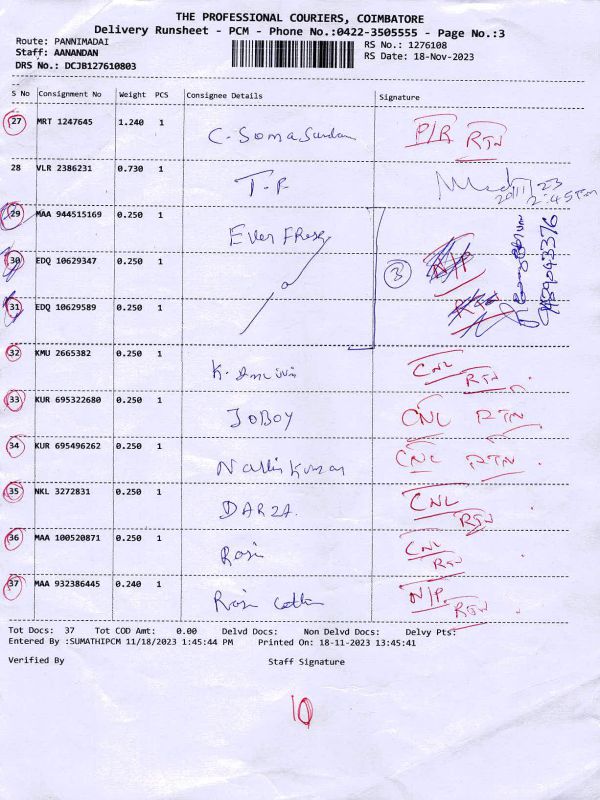 THE PROFESSIONAL COURIERS, COIMBATORE
Delivery Runsheet - PCM - Phone No.:0422-3505555 - Page No.:3
Route: PANNIMADAI
Staff: AANANDAN
DRS No.: DCJB127610803
RS No.: 1276108
RS Date: 18-Nov-2023
S No Consignment No Weight PCS Consignee Details Signature
27 MRT 1247645 1.240 1 C. Somasundaram P/R RTN
28 VLR 2386231 0.730 1 T.P. 20/11/23 2:45pm
29 MAA 944515169 0.250 1 Ever Fresh
30 EDQ 10629347 0.250 1 3 N/P
31 EDQ 10629589 0.250 1 RTN
32 KMU 2665382 0.250 1 K. CNL RTN
33 KUR 695322680 0.250 1 JOBOY CNL RTN
34 KUR 695496262 0.250 1 Nallikumar CNL RTN
35 NKL 3272831 0.250 1 DARZA. CNL RTN
36 MAA 100520871 0.250 1 Rosi CNL RTN
37 MAA 932386445 0.240 1 Rosi N/P RTN
Tot Docs: 37 Tot COD Amt: 0.00 Delvd Docs: Non Delvd Docs: Delvy Pts:
Entered By :SUMATHIPCM 11/18/2023 1:45:44 PM Printed On: 18-11-2023 13:45:41
Verified By Staff Signature
10